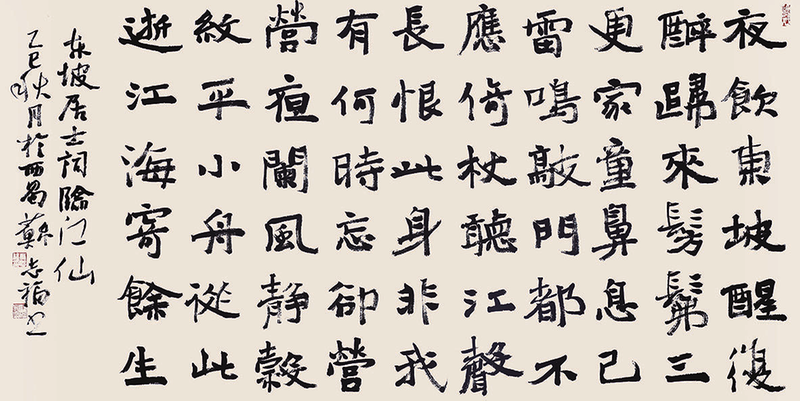 夜飲東坡醒復
醉歸來髣髴三
更家童鼻息已
雷鳴敲門都不
應倚杖聽江聲
長恨此身非我
有何時忘卻營
營亱闌風靜縠
紋平小舟從此
逝江海寄餘生
東坡居士詞臨江仙
乙巳秋月於西蜀志福書